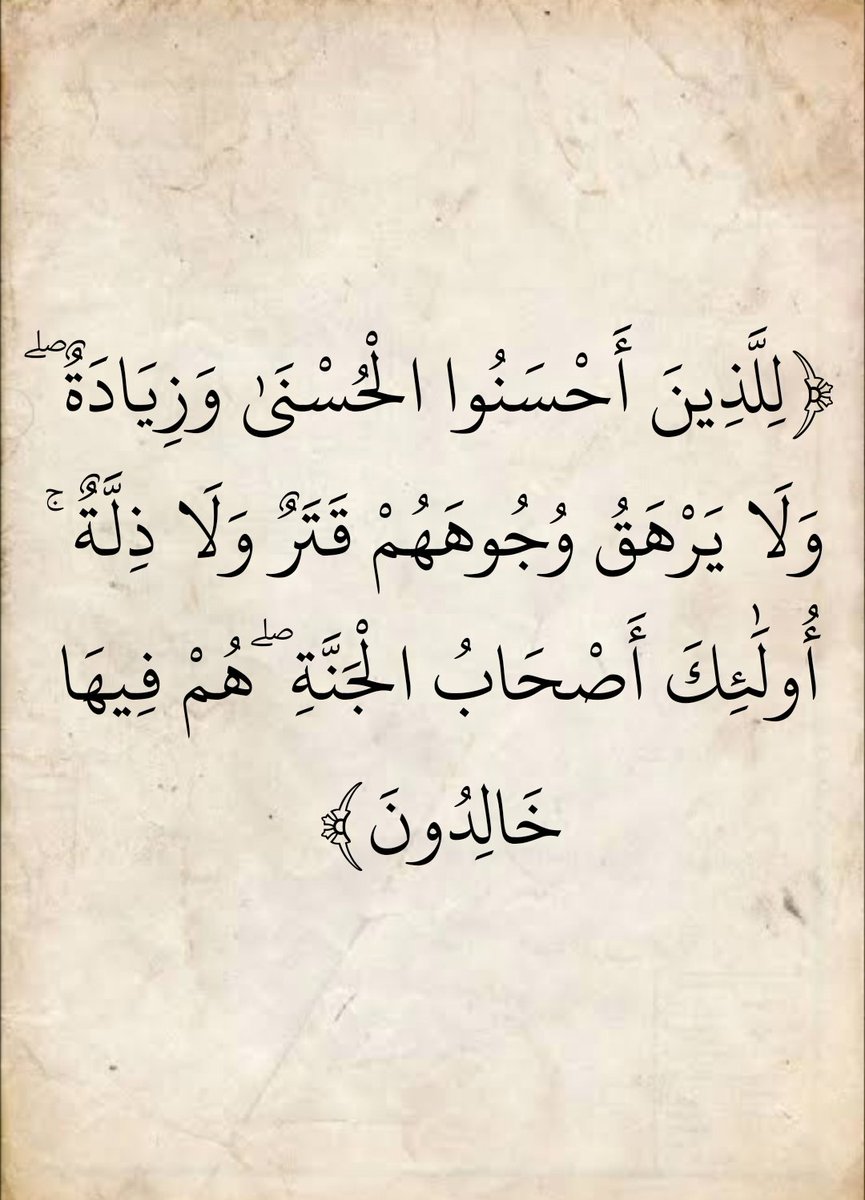 ﴿لِلَّذِينَ أَحْسَنُوا الْحُسْنَىٰ وَزِيَادَةٌ ۖ
وَلَا يَرْهَقُ وُجُوهَهُمْ قَتَرٌ وَلَا ذِلَّةٌ ۚ
أُولَٰئِكَ أَصْحَابُ الْجَنَّةِ ۖ هُمْ فِيهَا
خَالِدُونَ﴾